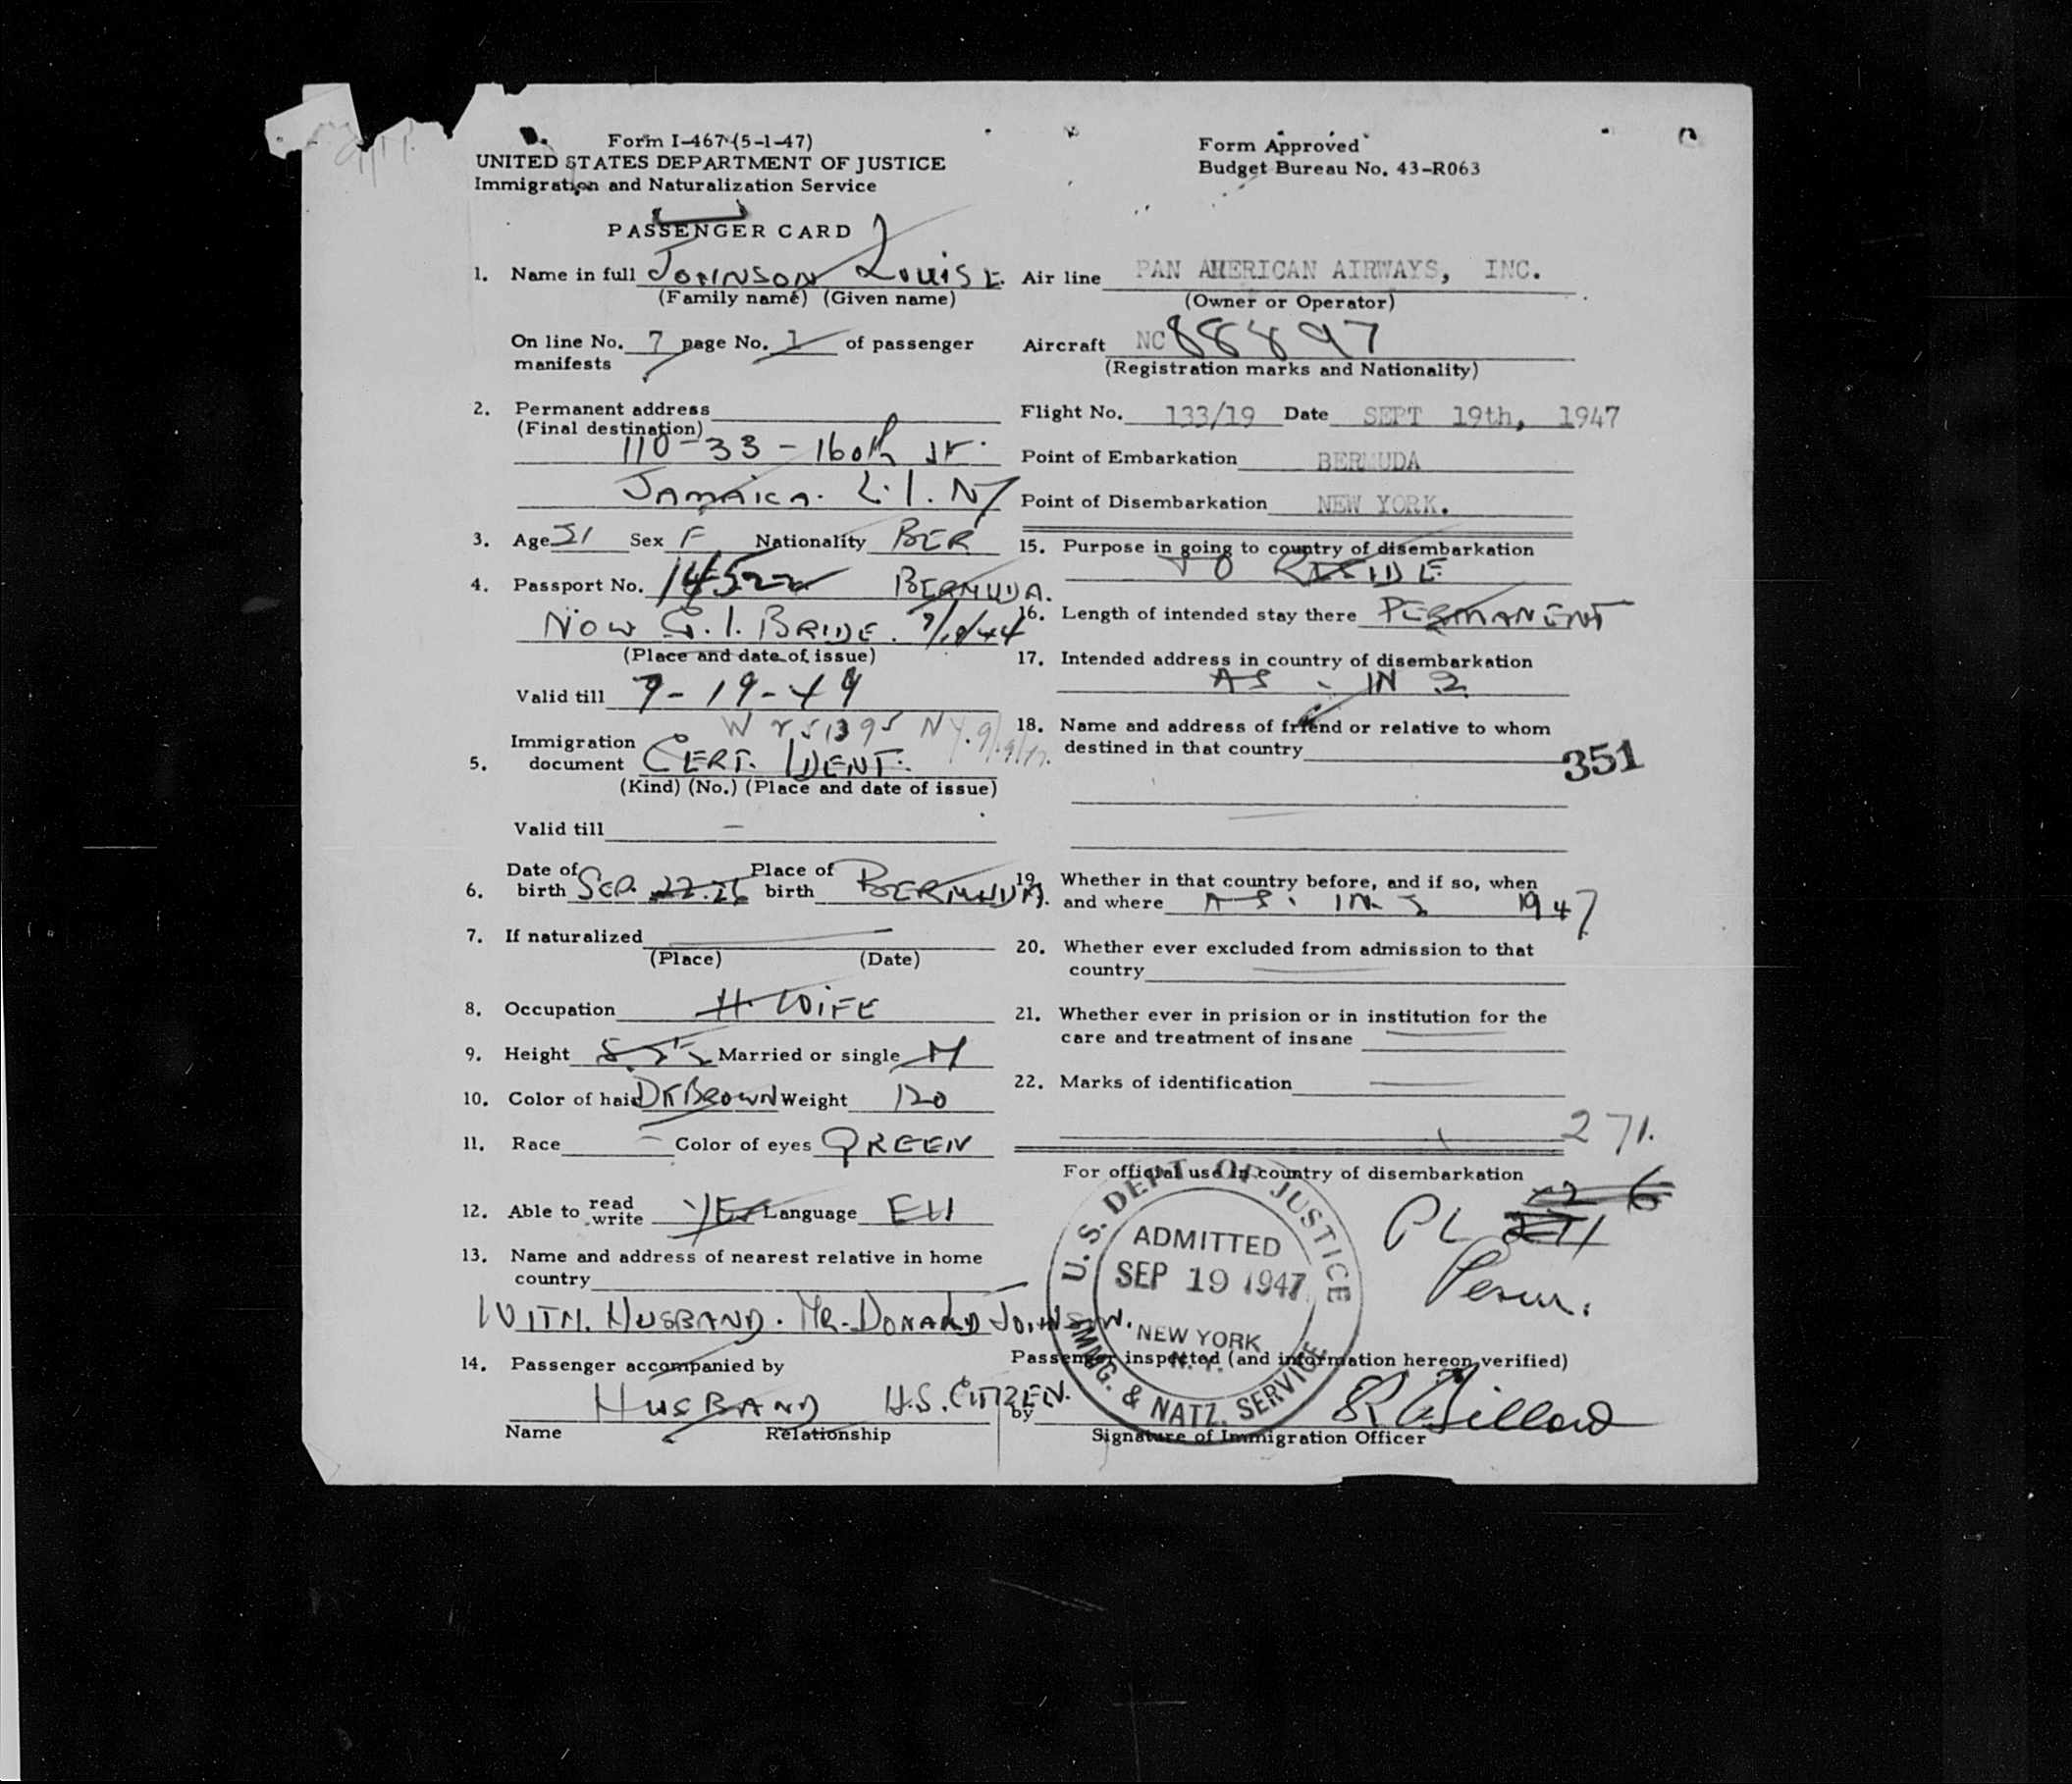 Form I-467 (5-1-47)
UNITED STATES DEPARTMENT OF JUSTICE
Immigration and Naturalization Service
Form Approved
Budget Bureau No. 43-R063
PASSENGER CARD
1. Name in full JOHNSON LOUISE
(Family name) (Given name)
On line No. 7 page No. 1 of passenger
manifests
2. Permanent address
(Final destination)
110-33-160th St.
JAMAICA. L.I. NY
3. Age 21 Sex F Nationality BER
4. Passport No. 14522 BERMUDA.
NOW G.I. BRIDE.
(Place and date of issue)
Valid till 9-19-49
NY.
5. Immigration
document CERT. IDENT.
(Kind) (No.) (Place and date of issue)
Valid till —
6. Date of
birth SEP. Place of
birth BERMUDA.
7. If naturalized —
(Place) (Date)
8. Occupation H. WIFE
9. Height Married or single M
10. Color of hair DK BROWN Weight 120
11. Race — Color of eyes GREEN
12. Able to read
write YES Language
13. Name and address of nearest relative in home
country
WITH. HUSBAND. MR. DONALD JOHNSON.
14. Passenger accompanied by
HUSBAND U.S. CITIZEN.
Name Relationship
Air line PAN AMERICAN AIRWAYS, INC.
(Owner or Operator)
Aircraft NC 88897
(Registration marks and Nationality)
Flight No. 133/19 Date SEPT 19th, 1947
Point of Embarkation BERMUDA
Point of Disembarkation NEW YORK.
15. Purpose in going to country of disembarkation
TO RESIDE.
16. Length of intended stay there PERMANENT
17. Intended address in country of disembarkation
AS - IN 2
18. Name and address of friend or relative to whom
destined in that country
351
19. Whether in that country before, and if so, when
and where AS. IN 1947
20. Whether ever excluded from admission to that
country —
21. Whether ever in prision or in institution for the
care and treatment of insane —
22. Marks of identification —
271.
For official use in country of disembarkation
U. S. DEPT. OF JUSTICE
ADMITTED
SEP 19 1947
NEW YORK
N. Y.
IMMG. & NATZ. SERVICE
PL
6
Perm.
Passenger inspected (and information hereon verified)
by
Signature of Immigration Officer